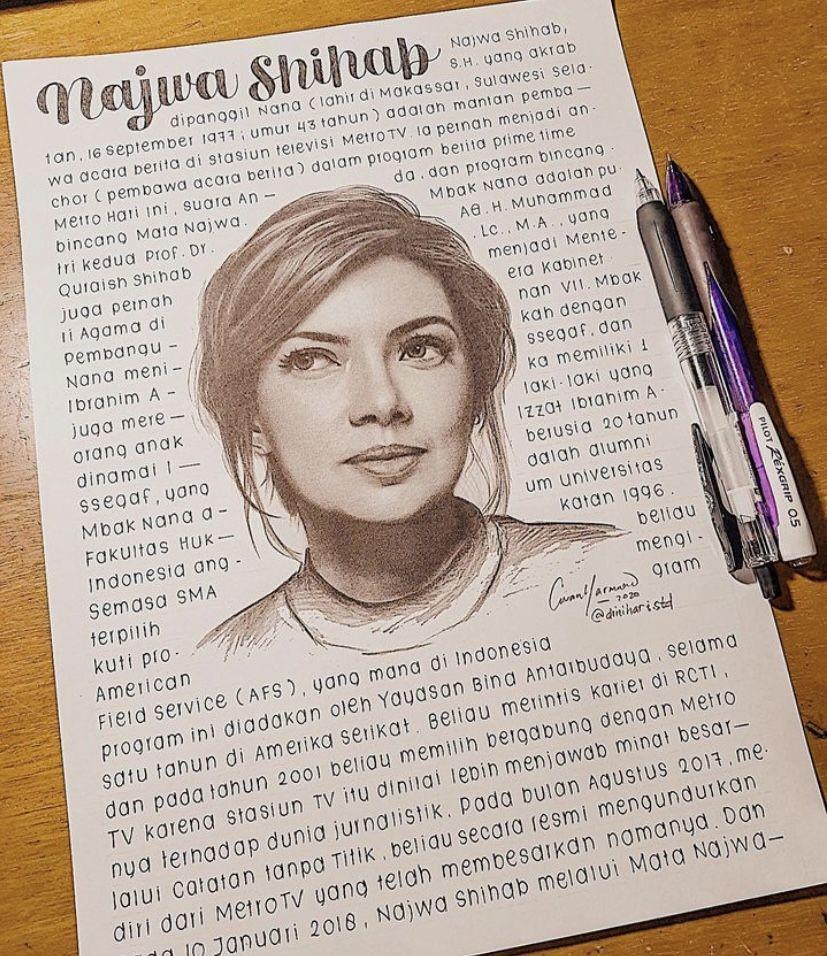 Najwa Shihab
Najwa Shihab,
S.H. yang akrab
dipanggil Nana (lahir di Makassar, Sulawesi Sela-
tan, 16 September 1977; umur 43 tahun) adalah mantan pemba-
wa acara berita di stasiun televisi MetroTV. Ia pernah menjadi an-
chor (pembawa acara berita) dalam program berita prime time
Metro Hari Ini, Suara An- da, dan program bincang-
bincang Mata Najwa. Mbak Nana adalah pu-
tri kedua Prof. Dr. AG. H. Muhammad
Quraish Shihab, Lc., M.A., yang
juga pernah menjadi Mente-
ri Agama di era kabinet
Pembangu- nan VII. Mbak
Nana meni- kah dengan
Ibrahim A- ssegaf, dan
juga mere- ka memiliki 1
orang anak laki-laki yang
dinamai I- Izzat Ibrahim A-
ssegaf, yang berusia 20 tahun
Mbak Nana a- dalah alumni
Fakultas Huk- um Universitas
Indonesia ang- katan 1996.
Semasa SMA beliau
terpilih mengi-
kuti pro- gram
American
Field Service (AFS), yang mana di Indonesia
program ini diadakan oleh Yayasan Bina Antarbudaya, selama
satu tahun di Amerika Serikat. Beliau merintis karier di RCTI,
dan pada tahun 2001 beliau memilih bergabung dengan Metro
TV karena stasiun TV itu dinilai lebih menjawab minat besar-
nya terhadap dunia jurnalistik. Pada bulan Agustus 2017, me-
lalui Catatan tanpa Titik, beliau secara resmi mengundurkan
diri dari MetroTV yang telah membesarkan namanya. Dan
10 Januari 2018, Najwa Shihab melalui Mata Najwa-
2020
@diniharistd
PILOT RéxGRIP 0.5